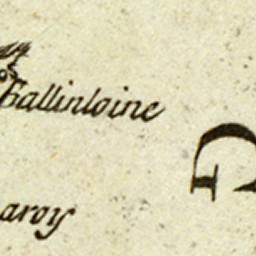 Ballinloine
aroy
G